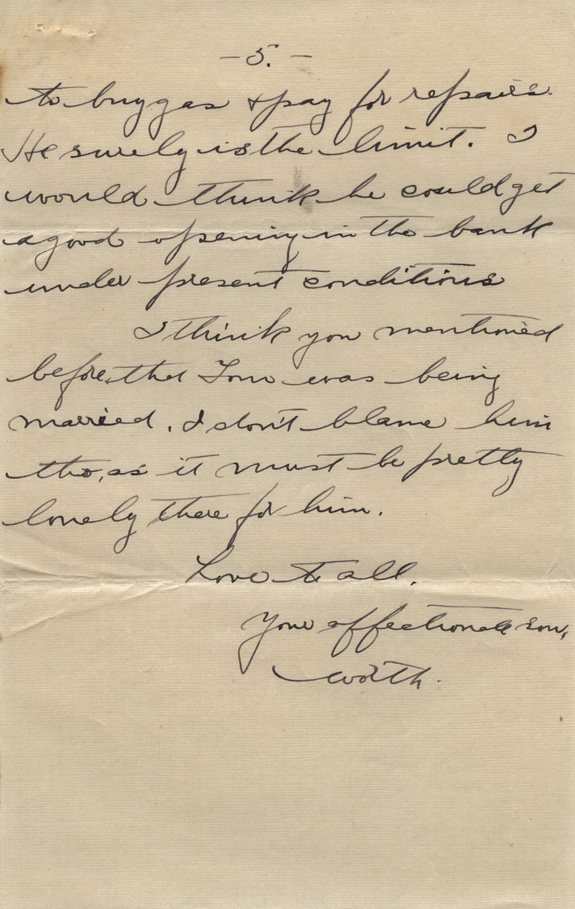 - 5. -
to buy gas & pay for repairs.
He surely is the limit. I
would think he could get
a good opening in the bank
under present conditions
I think you mentioned
before that Tom was being
married. I don't blame him
tho, as it must be pretty
lonely there for him.
Love to all.
Your affectionate son,
Worth.